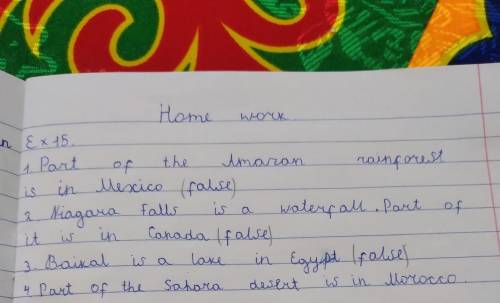 Home work.
Ex 15.
1. Part of the Amazan rainforest
is in Mexico (false)
2 Niagara Falls is a waterfall. Part of
it is in Canada (false)
3. Baikal is a lake in Egypt (false)
4. Part of the Sahara desert is in Morocco.